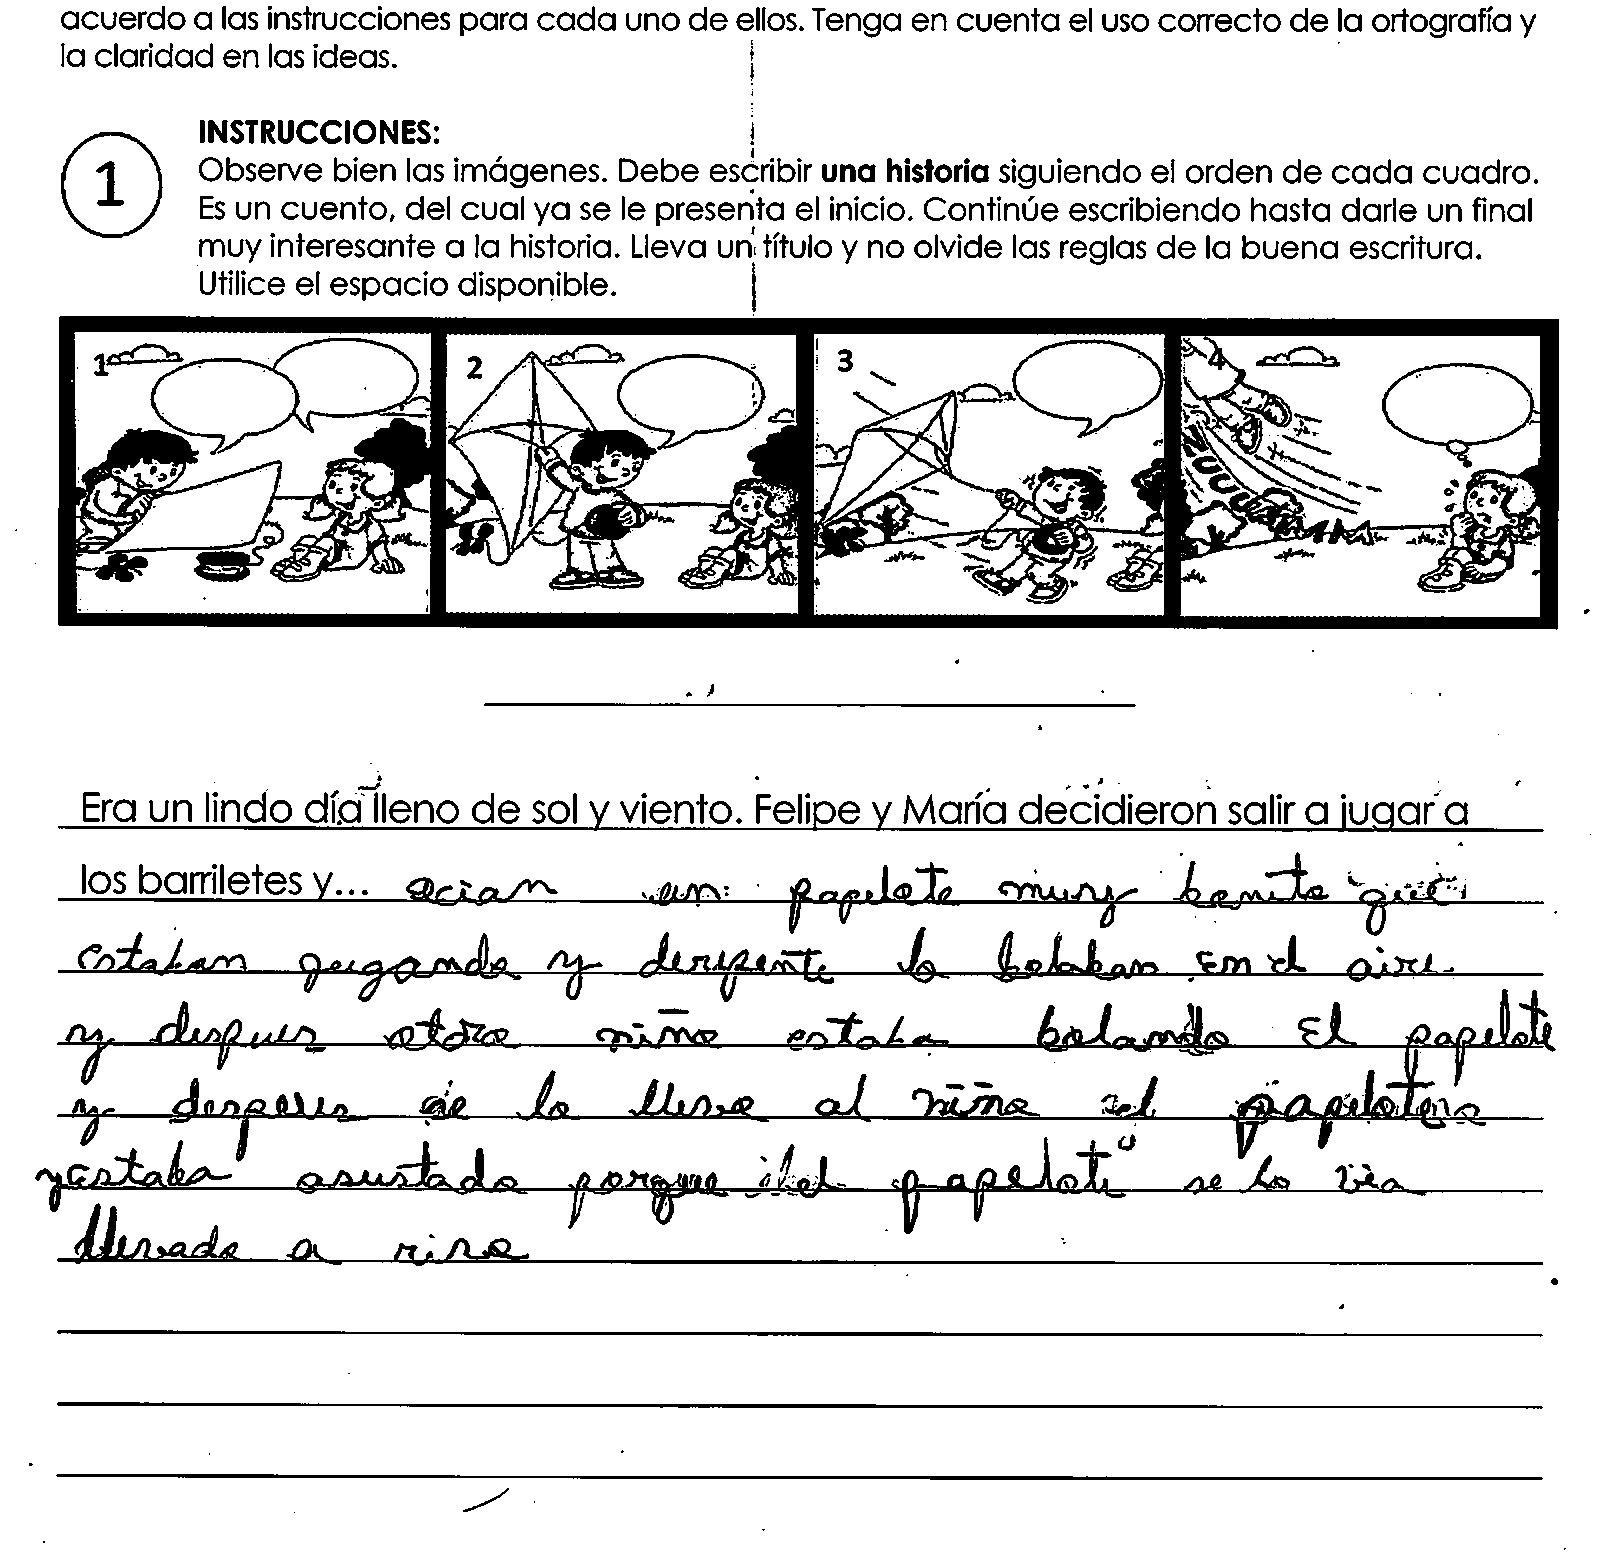 acuerdo a las instrucciones para cada uno de ellos. Tenga en cuenta el uso correcto de la ortografía y
la claridad en las ideas.
1
INSTRUCCIONES:
Observe bien las imágenes. Debe escribir una historia siguiendo el orden de cada cuadro.
Es un cuento, del cual ya se le presenta el inicio. Continúe escribiendo hasta darle un final
muy interesante a la historia. Lleva un título y no olvide las reglas de la buena escritura.
Utilice el espacio disponible.
1 2 3 4
ZUUUUMMMM
Era un lindo día lleno de sol y viento. Felipe y María decidieron salir a jugar a
los barriletes y... acian un papelote muy bonito que
estaban gugando y derepente lo bolaban en el aire
y despues otro niño estaba bolando El papelote
y despues se lo llevo al niño el
y estaba asustado porque el papelote se lo via
llevado a